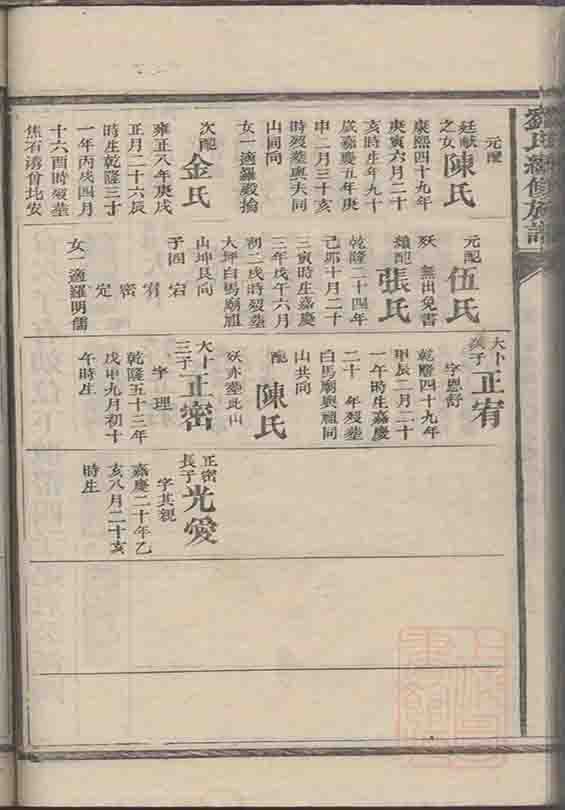 劉氏續修族譜
元配
廷献
之女
陳氏
康熙四十九年
庚寅六月二十
亥時生年九十
歲嘉慶五年庚
申二月三十亥
時殁塟與夫同
山同向
女一適羅毅掄
次配
金氏
雍正八年庚戌
正月二十六辰
時生乾隆三十
一年丙戌四月
十六酉時殁塟
焦石
曾比安
元配
伍氏
殁
無出免書
繼配
張氏
乾隆二十四年
己卯十月二十
三寅時生嘉慶
三年戊午六月
初二戌時殁塟
大坪白馬廟祖
山坤艮向
子四
宕
宥
密
定
女一適羅明儒
大卜
次子
正宥
字恩舒
乾隆四十九年
甲辰二月二十
一午時生嘉慶
二十
年殁塟
白馬廟與祖同
山共向
配
陳氏
殁亦塟此山
大卜
三子
正密
字
理
乾隆五十三年
戊申九月初十
午時生
正密
長子
光愛
字其親
嘉慶二十年乙
亥八月二十亥
時生